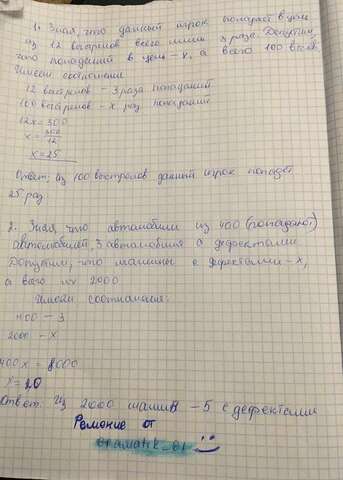 1. Зная, что данный игрок попадает в цель
из 12 выстрелов всего лишь 3 раза. Допустим,
что попаданий в цель - x, а всего 100 выстр.
Имеем соотношение
12 выстрелов - 3 раза попаданий
100 выстрелов - x раз попаданий
12x = 300
x = 300/12
x = 25
Ответ: Из 100 выстрелов данный игрок попадет
25 раз
2. Зная, что автомобили из 400
автомобилей, 3 автомобиля с дефектами
Допустим, что машины с дефектами - x,
а всего их 2000
Имеем соотношения:
400 - 3
2000 - x
400x = 8000
x = 20
Ответ: Из 2000 машин - 5 с дефектами
Решение от